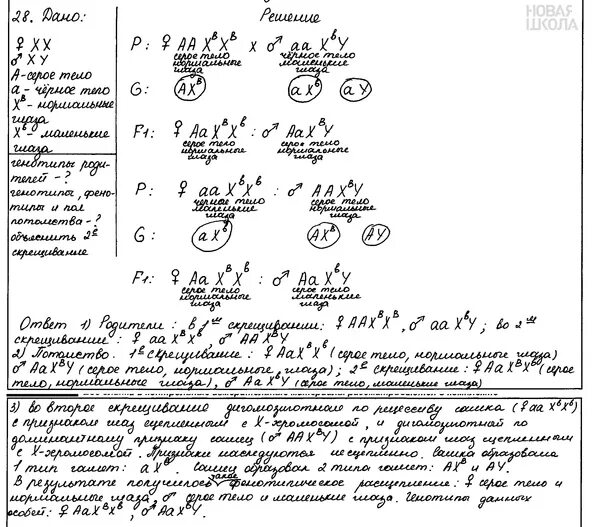 НОВАЯ
ШКОЛА
28. Дано:
♀ XX
♂ XY
A-серое тело
a - чёрное тело
Xᴮ - нормальные
глаза
Xᵇ - маленькие
глаза
генотипы роди-
телей - ?
генотипы, фено-
типы и пол
потомства - ?
объяснить 2ᵉ
скрещивание
Решение
P: ♀ AA XᴮXᴮ x ♂ aa XᵇY
серое тело чёрное тело
нормальные маленькие
глаза глаза
G: AXᴮ aXᵇ aY
F1: ♀ Aa XᴮXᵇ : ♂ AaXᴮY
серое тело серое тело
нормальные нормальные
глаза глаза
P: ♀ aa XᵇXᵇ : ♂ AAXᴮY
чёрное тело серое тело
маленькие нормальные
глаза глаза
G: aXᵇ AXᴮ AY
F1: ♀ Aa XᴮXᵇ : ♂ AaXᵇY
серое тело серое тело
нормальные маленькие
глаза глаза
Ответ 1) Родители: в 1ᵒᵐ скрещивании: ♀AAXᴮXᴮ, ♂ aa XᵇY; во 2ᵒᵐ
скрещивание: ♀ aa XᵇXᵇ, ♂ AA XᴮY
2) Потомство. 1ᵉ скрещивание: ♀AaXᴮXᵇ (серое тело, нормальные глаза)
♂ AaXᴮY (серое тело, нормальные, глаза); 2ᵉ скрещивание: ♀AaXᴮXᵇ (серое
тело, нормальные глаза), ♂ Aa XᵇY (серое тело, маленькие глаза)
3) во второе скрещивание дигомозиготная по рецессиву самка (♀aa XᵇXᵇ)
с признаком глаз сцепленным с X-хромосомой, и дигомозиготной по
доминантному признаку самец (♂ AAXᴮY) с признаком глаз сцепленным
с X-хромосомой. Признаки наследуются несцепленно. Самка образовала
1 тип гамет: aXᵇ. Самец образовал 2 типа гамет: AXᴮ и AY.
В результате получилось такое фенотипическое расщепление: ♀ серое тело и
нормальные глаза, ♂ серое тело и маленькие глаза. Генотипы данных
особей: ♀AaXᴮXᵇ, ♂AaXᵇY.